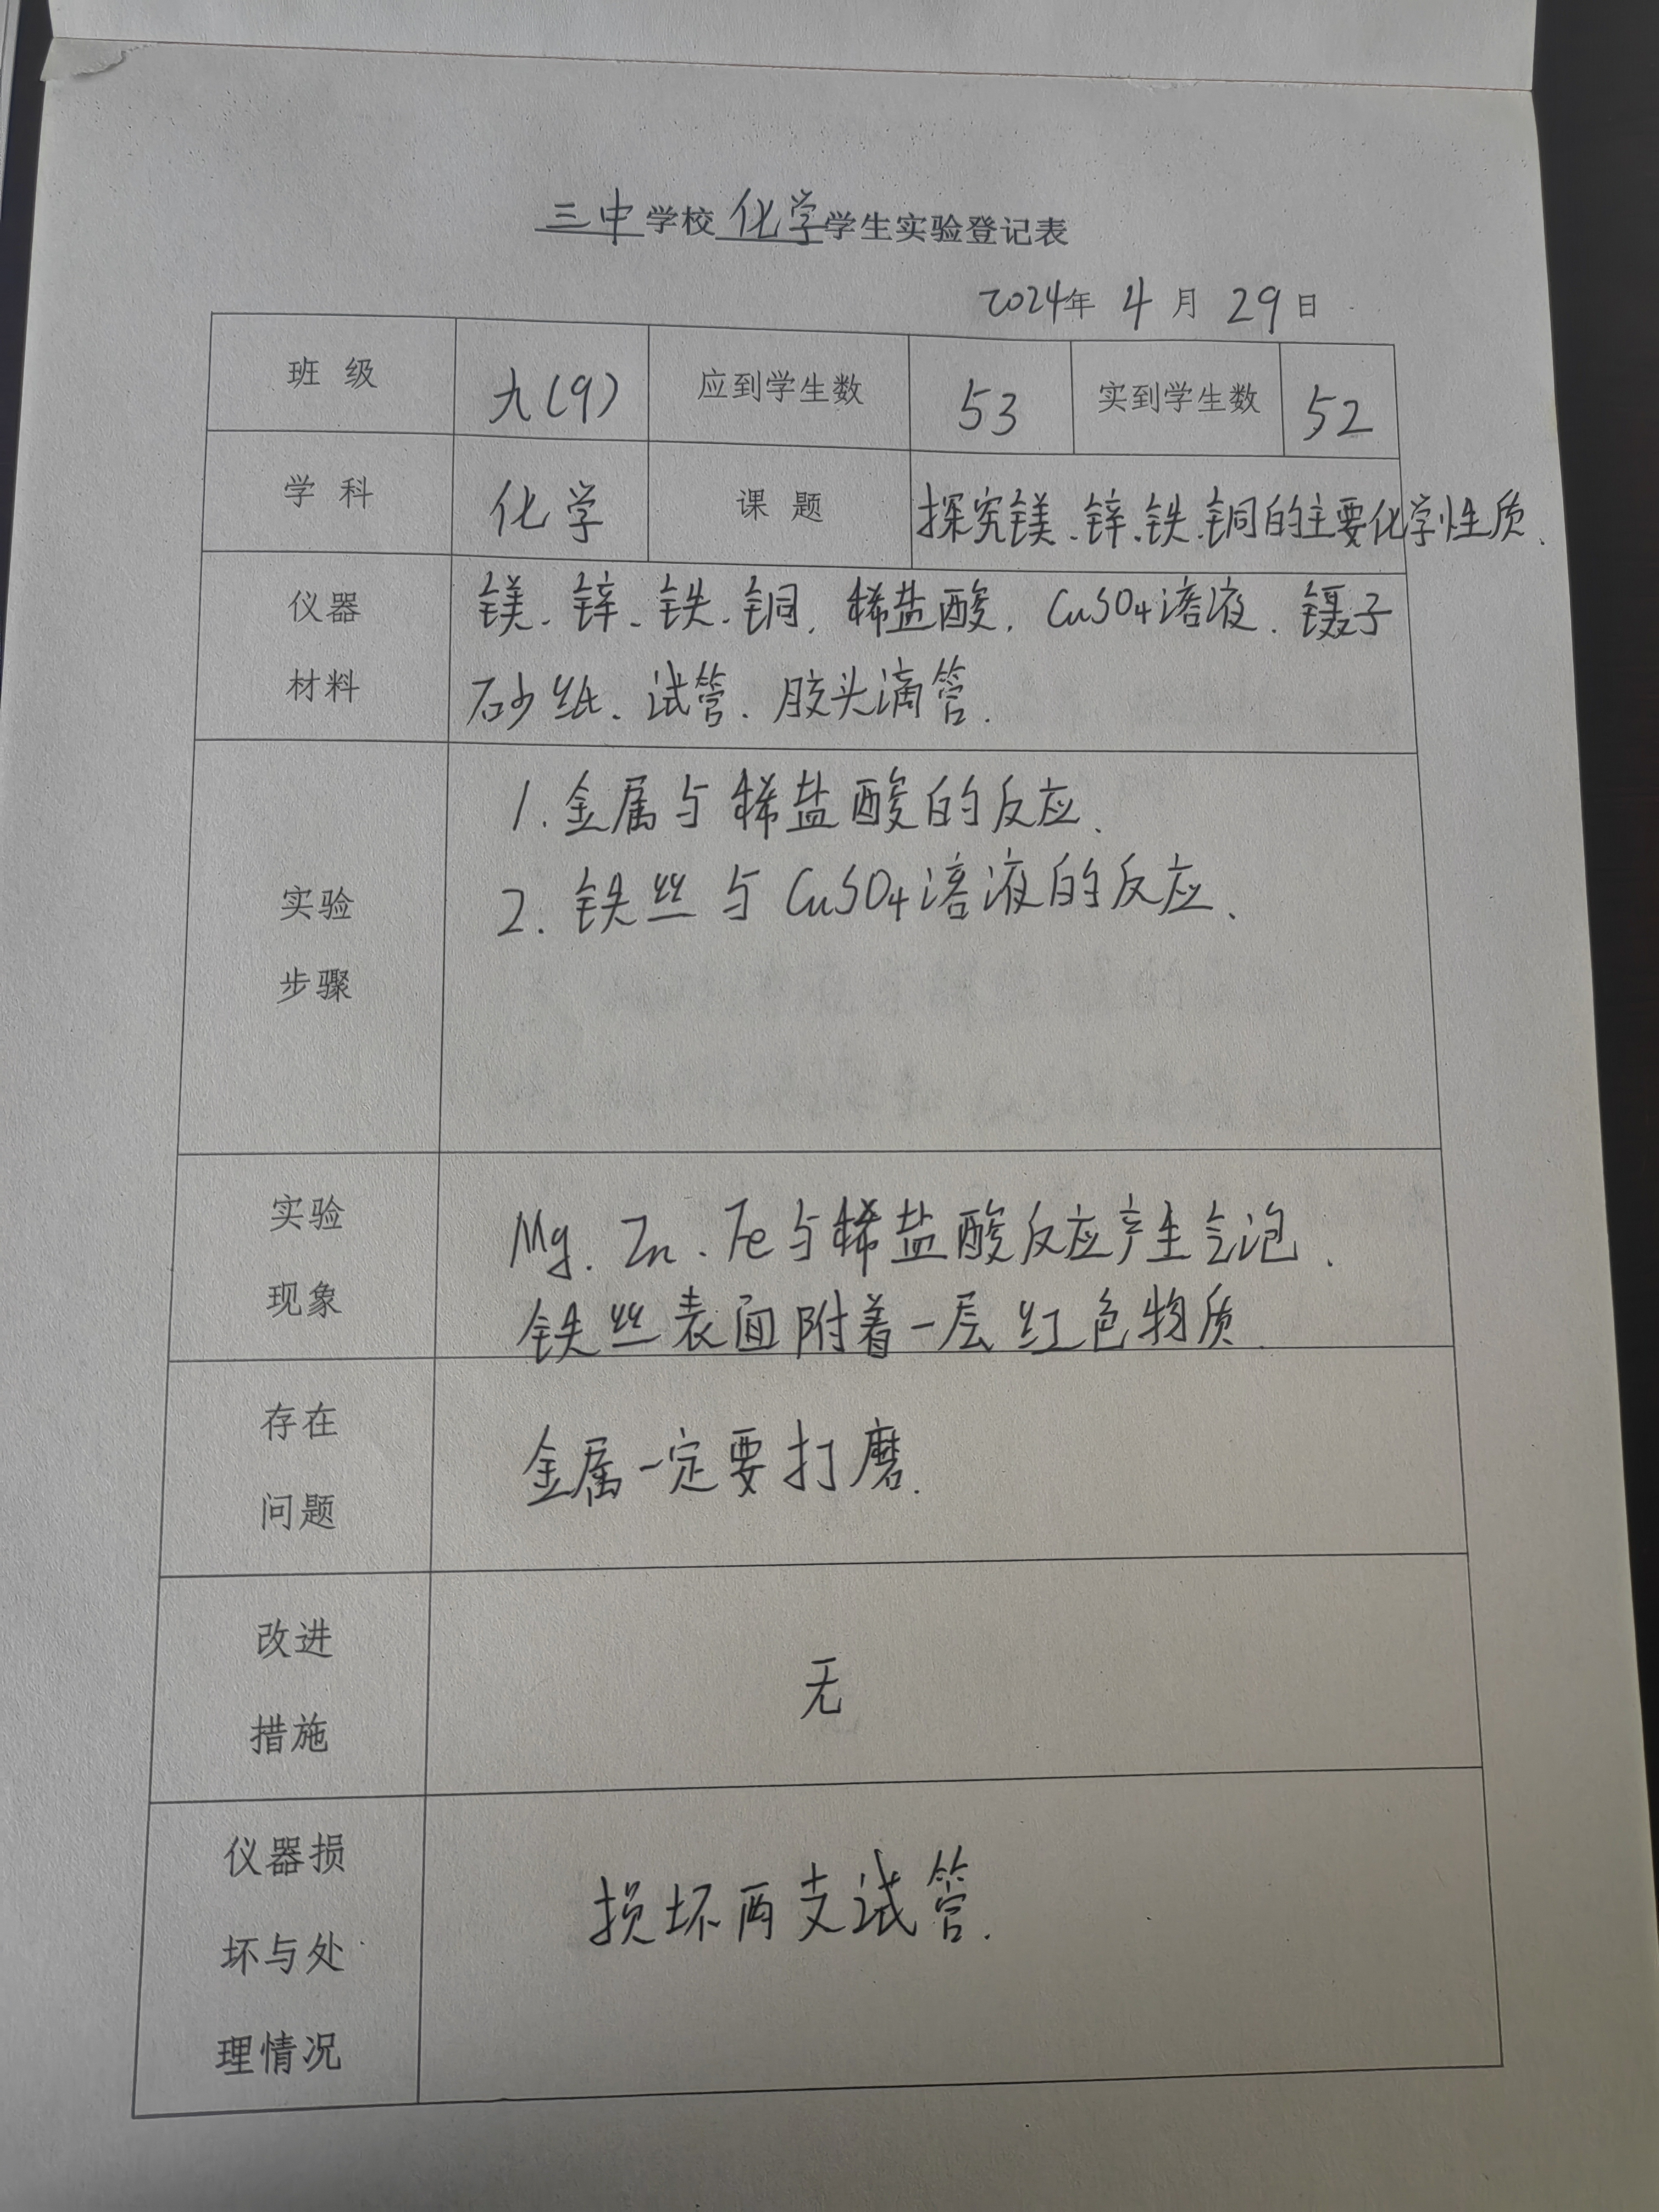 三中学校化学学生实验登记表
2024年 4月 29日
班级 九(9) 应到学生数 53 实到学生数 52
学科 化学 课题 探究镁、锌、铁、铜的主要化学性质.
仪器 镁、锌、铁、铜, 稀盐酸, CuSO4溶液. 镊子
材料 砂纸、试管、胶头滴管.
1. 金属与稀盐酸的反应.
实验 2. 铁丝与CuSO4溶液的反应.
步骤
实验 Mg、Zn、Fe与稀盐酸反应产生气泡.
现象 铁丝表面附着一层红色物质.
存在 金属一定要打磨.
问题
改进 无
措施
仪器损 损坏两支试管.
坏与处
理情况